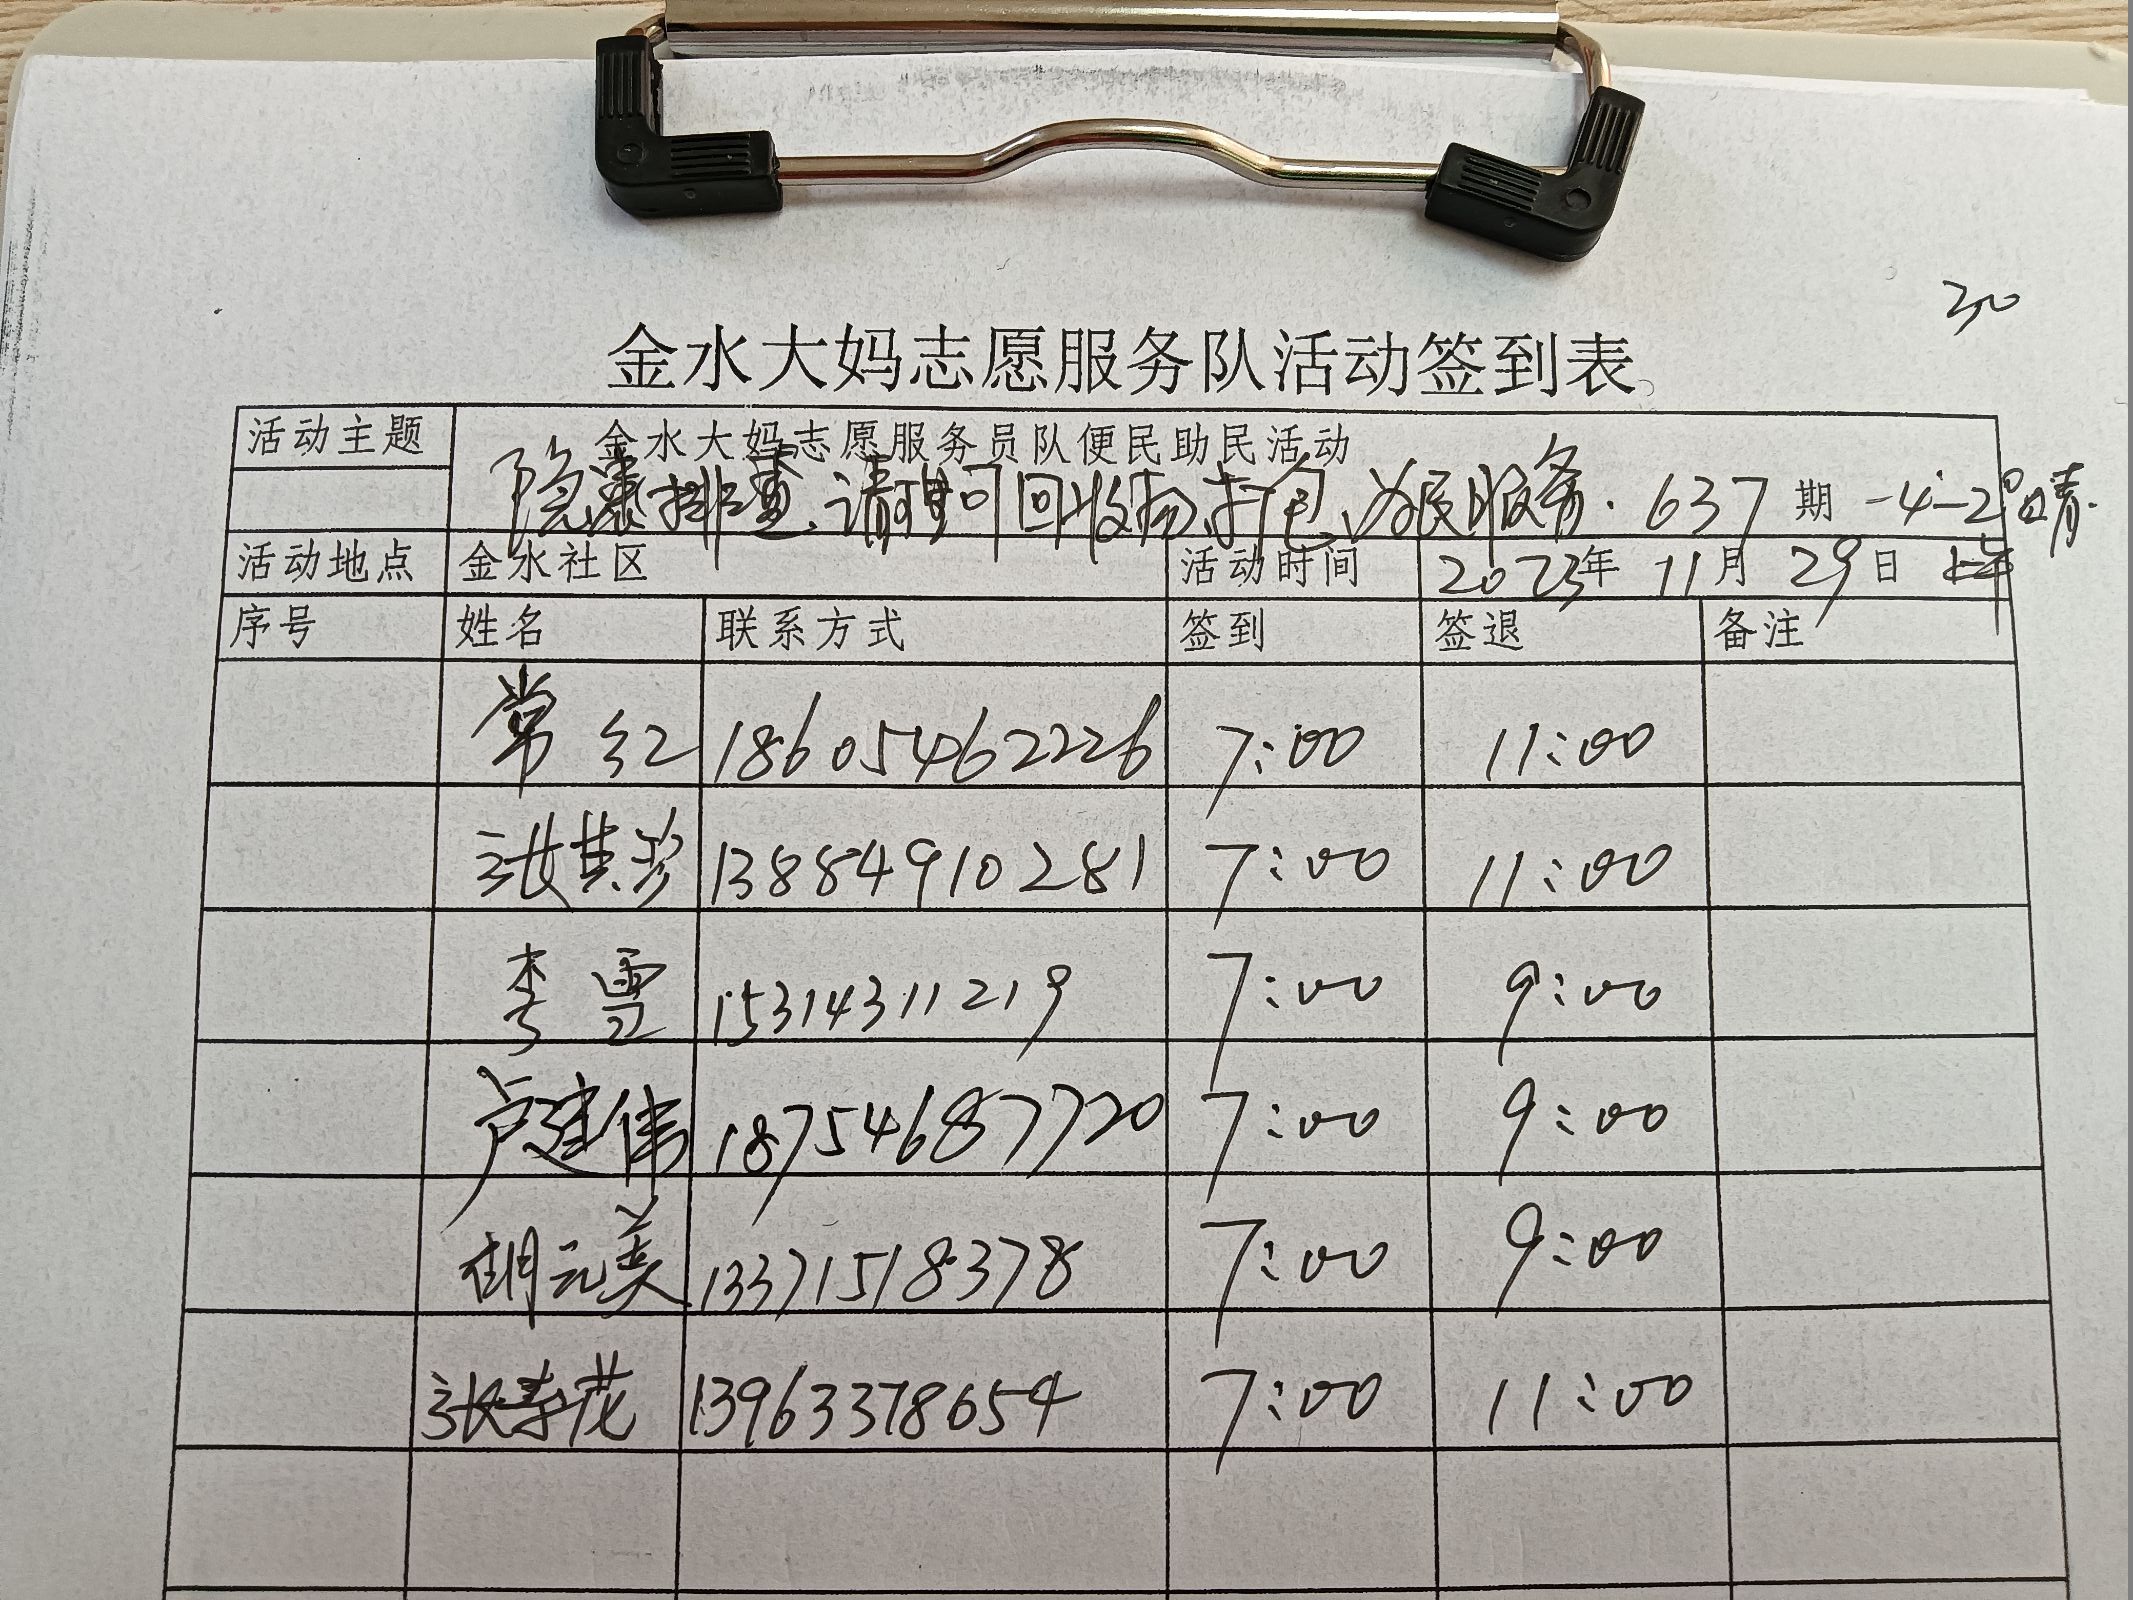 30
金水大妈志愿服务队活动签到表
活动主题 金水大妈志愿服务员队便民助民活动
隐患排查、清理可回收物打包、为民服务. 637 期 -4-2° 晴.
活动地点 金水社区 活动时间 2023年 11月 29日 上午
序号 姓名 联系方式 签到 签退 备注
常红 18605462226 7:00 11:00
张其珍 13884910281 7:00 11:00
李雪 15314311219 7:00 9:00
卢建伟 18754687720 7:00 9:00
胡元美 13371518378 7:00 9:00
张春花 13963378654 7:00 11:00